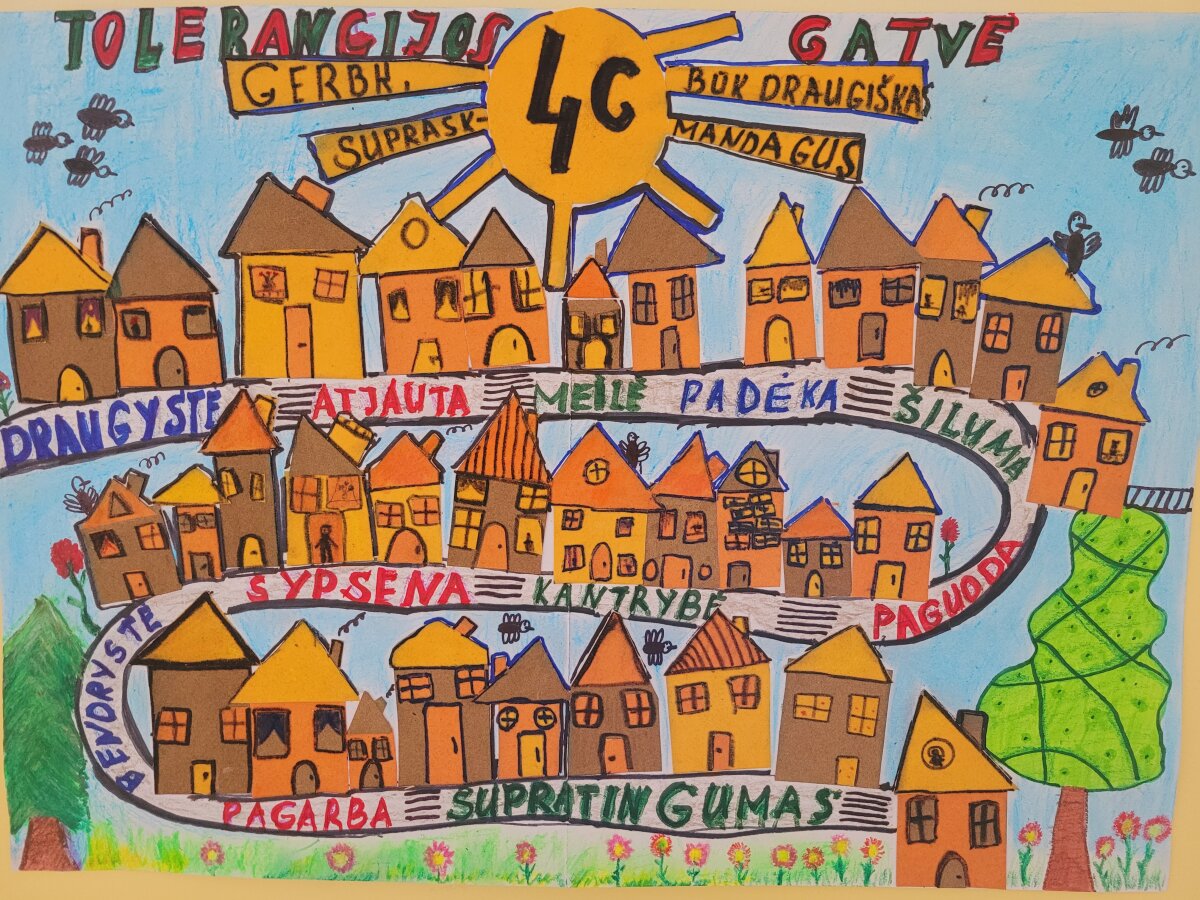 TOLERANCIJOS GATVĖ
GERBK,
SUPRASK-
4C
BŪK DRAUGIŠKAS
MANDAGUS
DRAUGYSTĖ
ATJAUTA
MEILĖ
PADĖKA
ŠILUMA
PAGUODA
KANTRYBĖ
ŠYPSENA
BENDRYSTĖ
PAGARBA
SUPRATINGUMAS